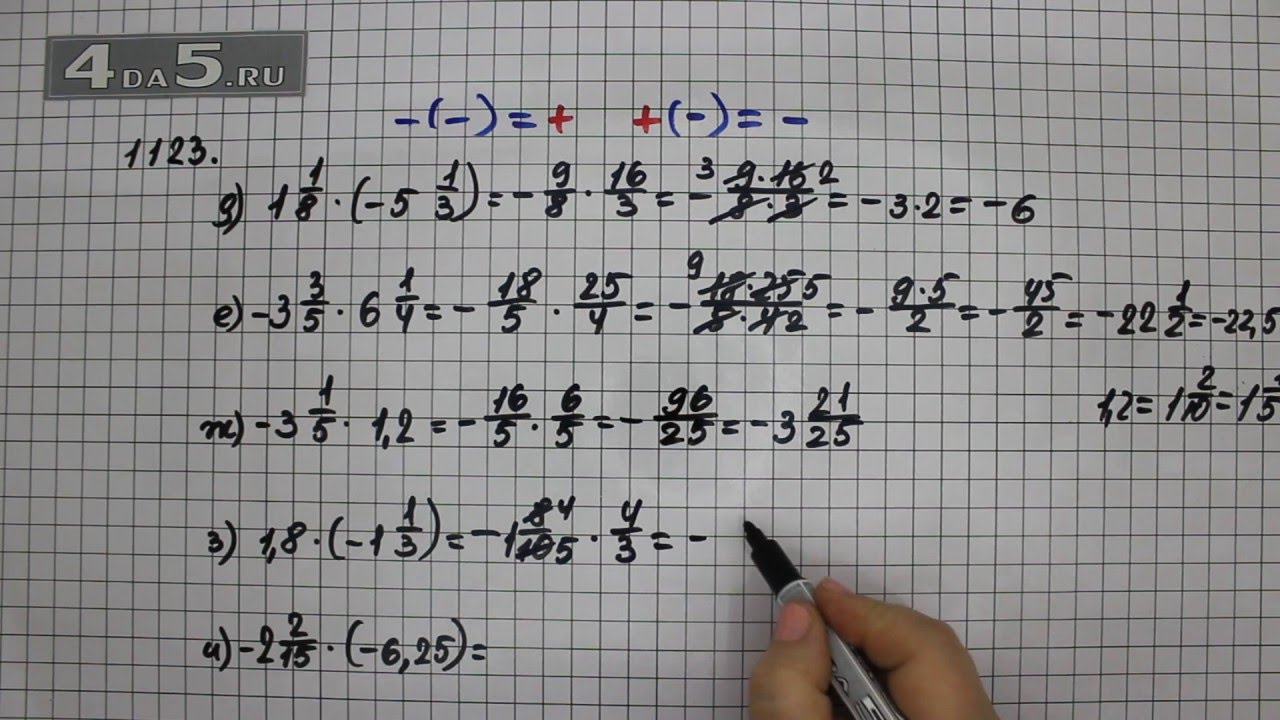 4DA5.RU
-(-) = + +(-) = -
1123.
д) 1 1/8 · (-5 1/3) = - 9/8 · 16/3 = - 3 9·16 2/8·3 = -3·2 = -6
е) -3 3/5 · 6 1/4 = - 18/5 · 25/4 = - 9 18·25 5/5·4 2 = - 9·5/2 = - 45/2 = -22 1/2 = -22,5
ж) -3 1/5 · 1,2 = - 16/5 · 6/5 = - 96/25 = -3 21/25
1,2 = 1 2/10 = 1 1/5
з) 1,8 · (-1 1/3) = -1 8 4/10 5 · 4/3 = -
и) -2 2/15 · (-6,25) =